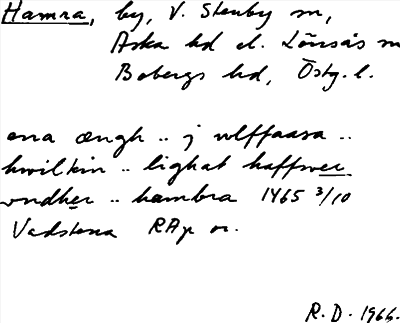 Hamra, by, V. Stenby sn,
Aska hd el. Lönsås sn
Bobergs hd, Östg. l.
ena ængh .. j vlffaasa ..
hwilkin .. lighat haffwer
vndher .. hambra 1465 3/10
Vadstena RAp or.
R. D. 1966.